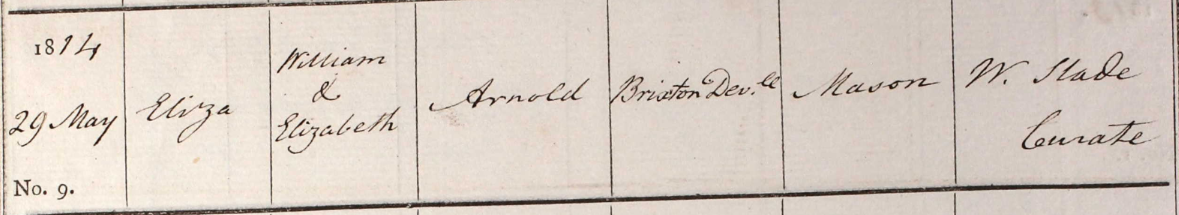 1814
29 May
No. 9.
Eliza
William
&
Elizabeth
Arnold
Brixton Dev.ll
Mason
W. Slade
Curate